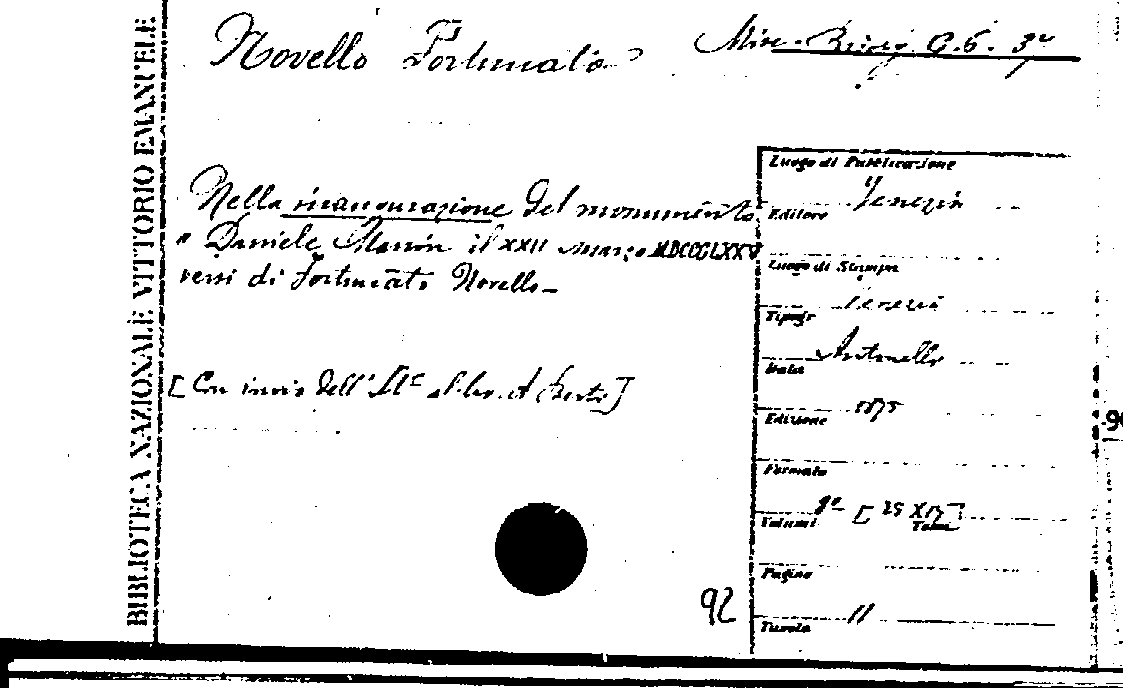 BIBLIOTECA NAZIONALE VITTORIO EMANUELE
Novello Fortunato
Misc. G.6.
Nella inaugurazione del monumento
a Daniele Manin il XXII marzo MDCCCLXXV
versi di Fortunato Novello
[Con invio dell'
92
Luogo di Pubblicazione
Venezia
Editore
Luogo di Stampa
Venezia
Tipogr
Antonelli
Data
1875
Edizione
Formato
8° [25 X 17]
Volumi Tomi
Pagine
11
Tavole